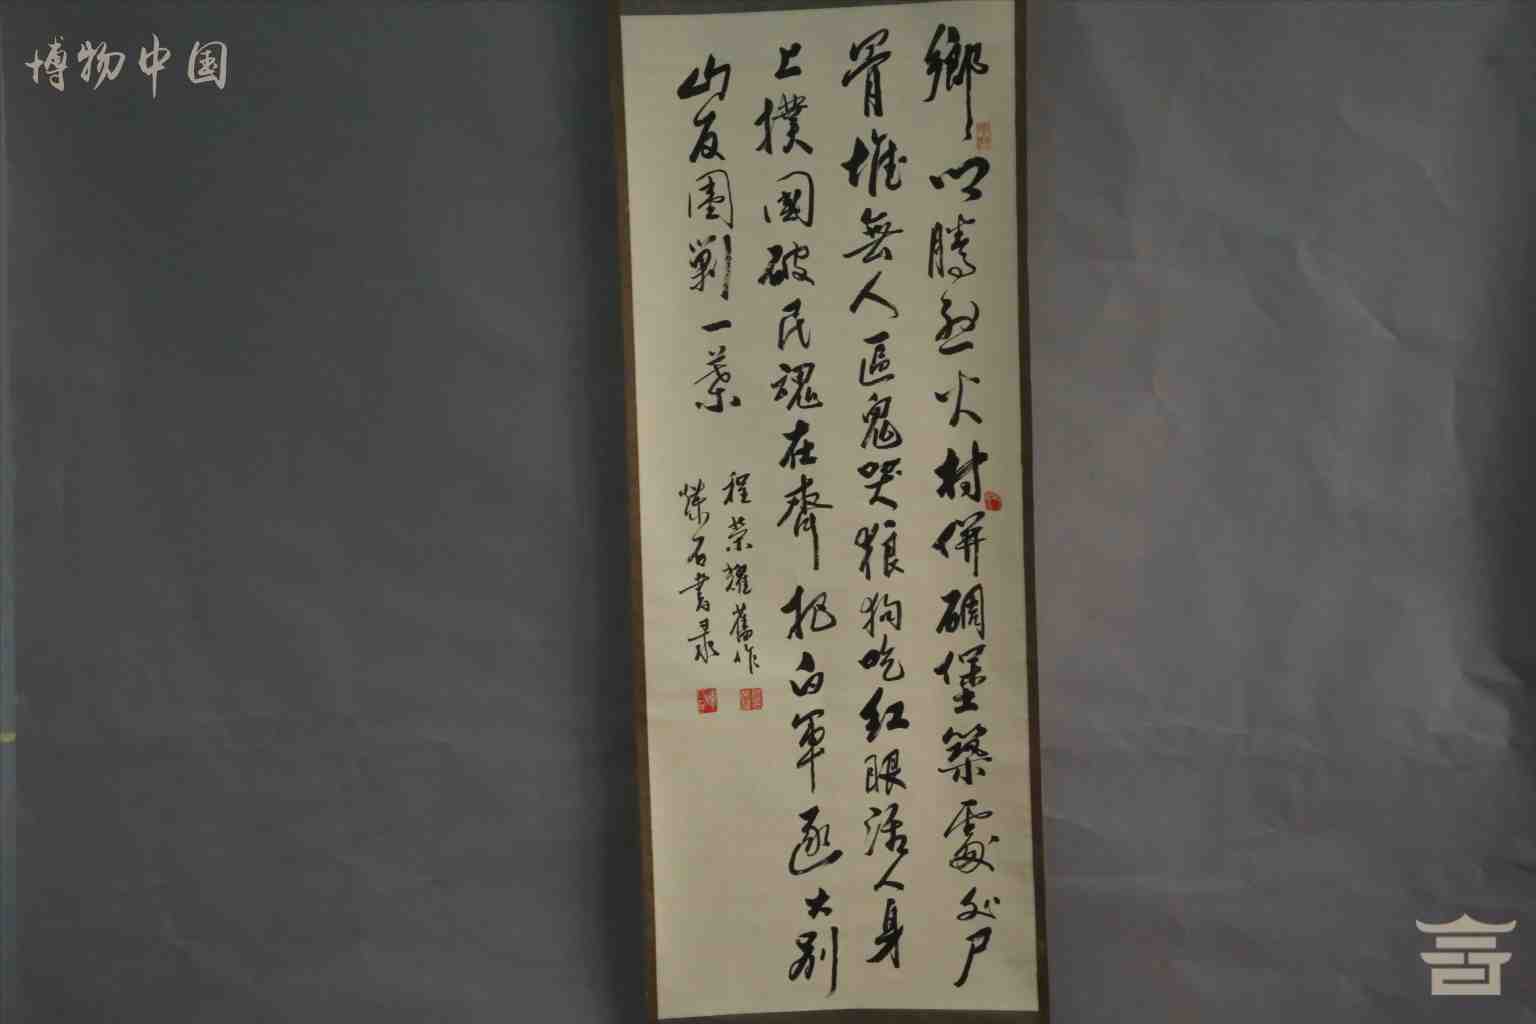 博物中国
鄉以騰怒火村併碉堡築處処尸
骨堆無人區鬼哭狼狗吃紅眼活人身
上撲國破民魂在齊把白軍逐大别
山反圍剿一葉
程荣耀舊作
石書录